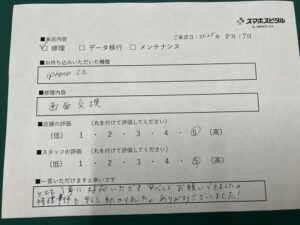 スマホスピタル
■来店内容
ご来店日：2025年 8月17日
☑ 修理 □ データ移行 □ メンテナンス
■お持ち込みいただいた機種
iphone SE
■修理内容
画面交換
■店舗の評価 （丸を付けて評価してください）
（低） 1 ・ 2 ・ 3 ・ 4 ・ 5 （高）
■スタッフの評価 （丸を付けて評価してください）
（低） 1 ・ 2 ・ 3 ・ 4 ・ 5 （高）
■一言いただけますと幸いです
とても丁寧に対応いただき 安心して お願いできました。
修理 早くて 助かりました。ありがとうございました！